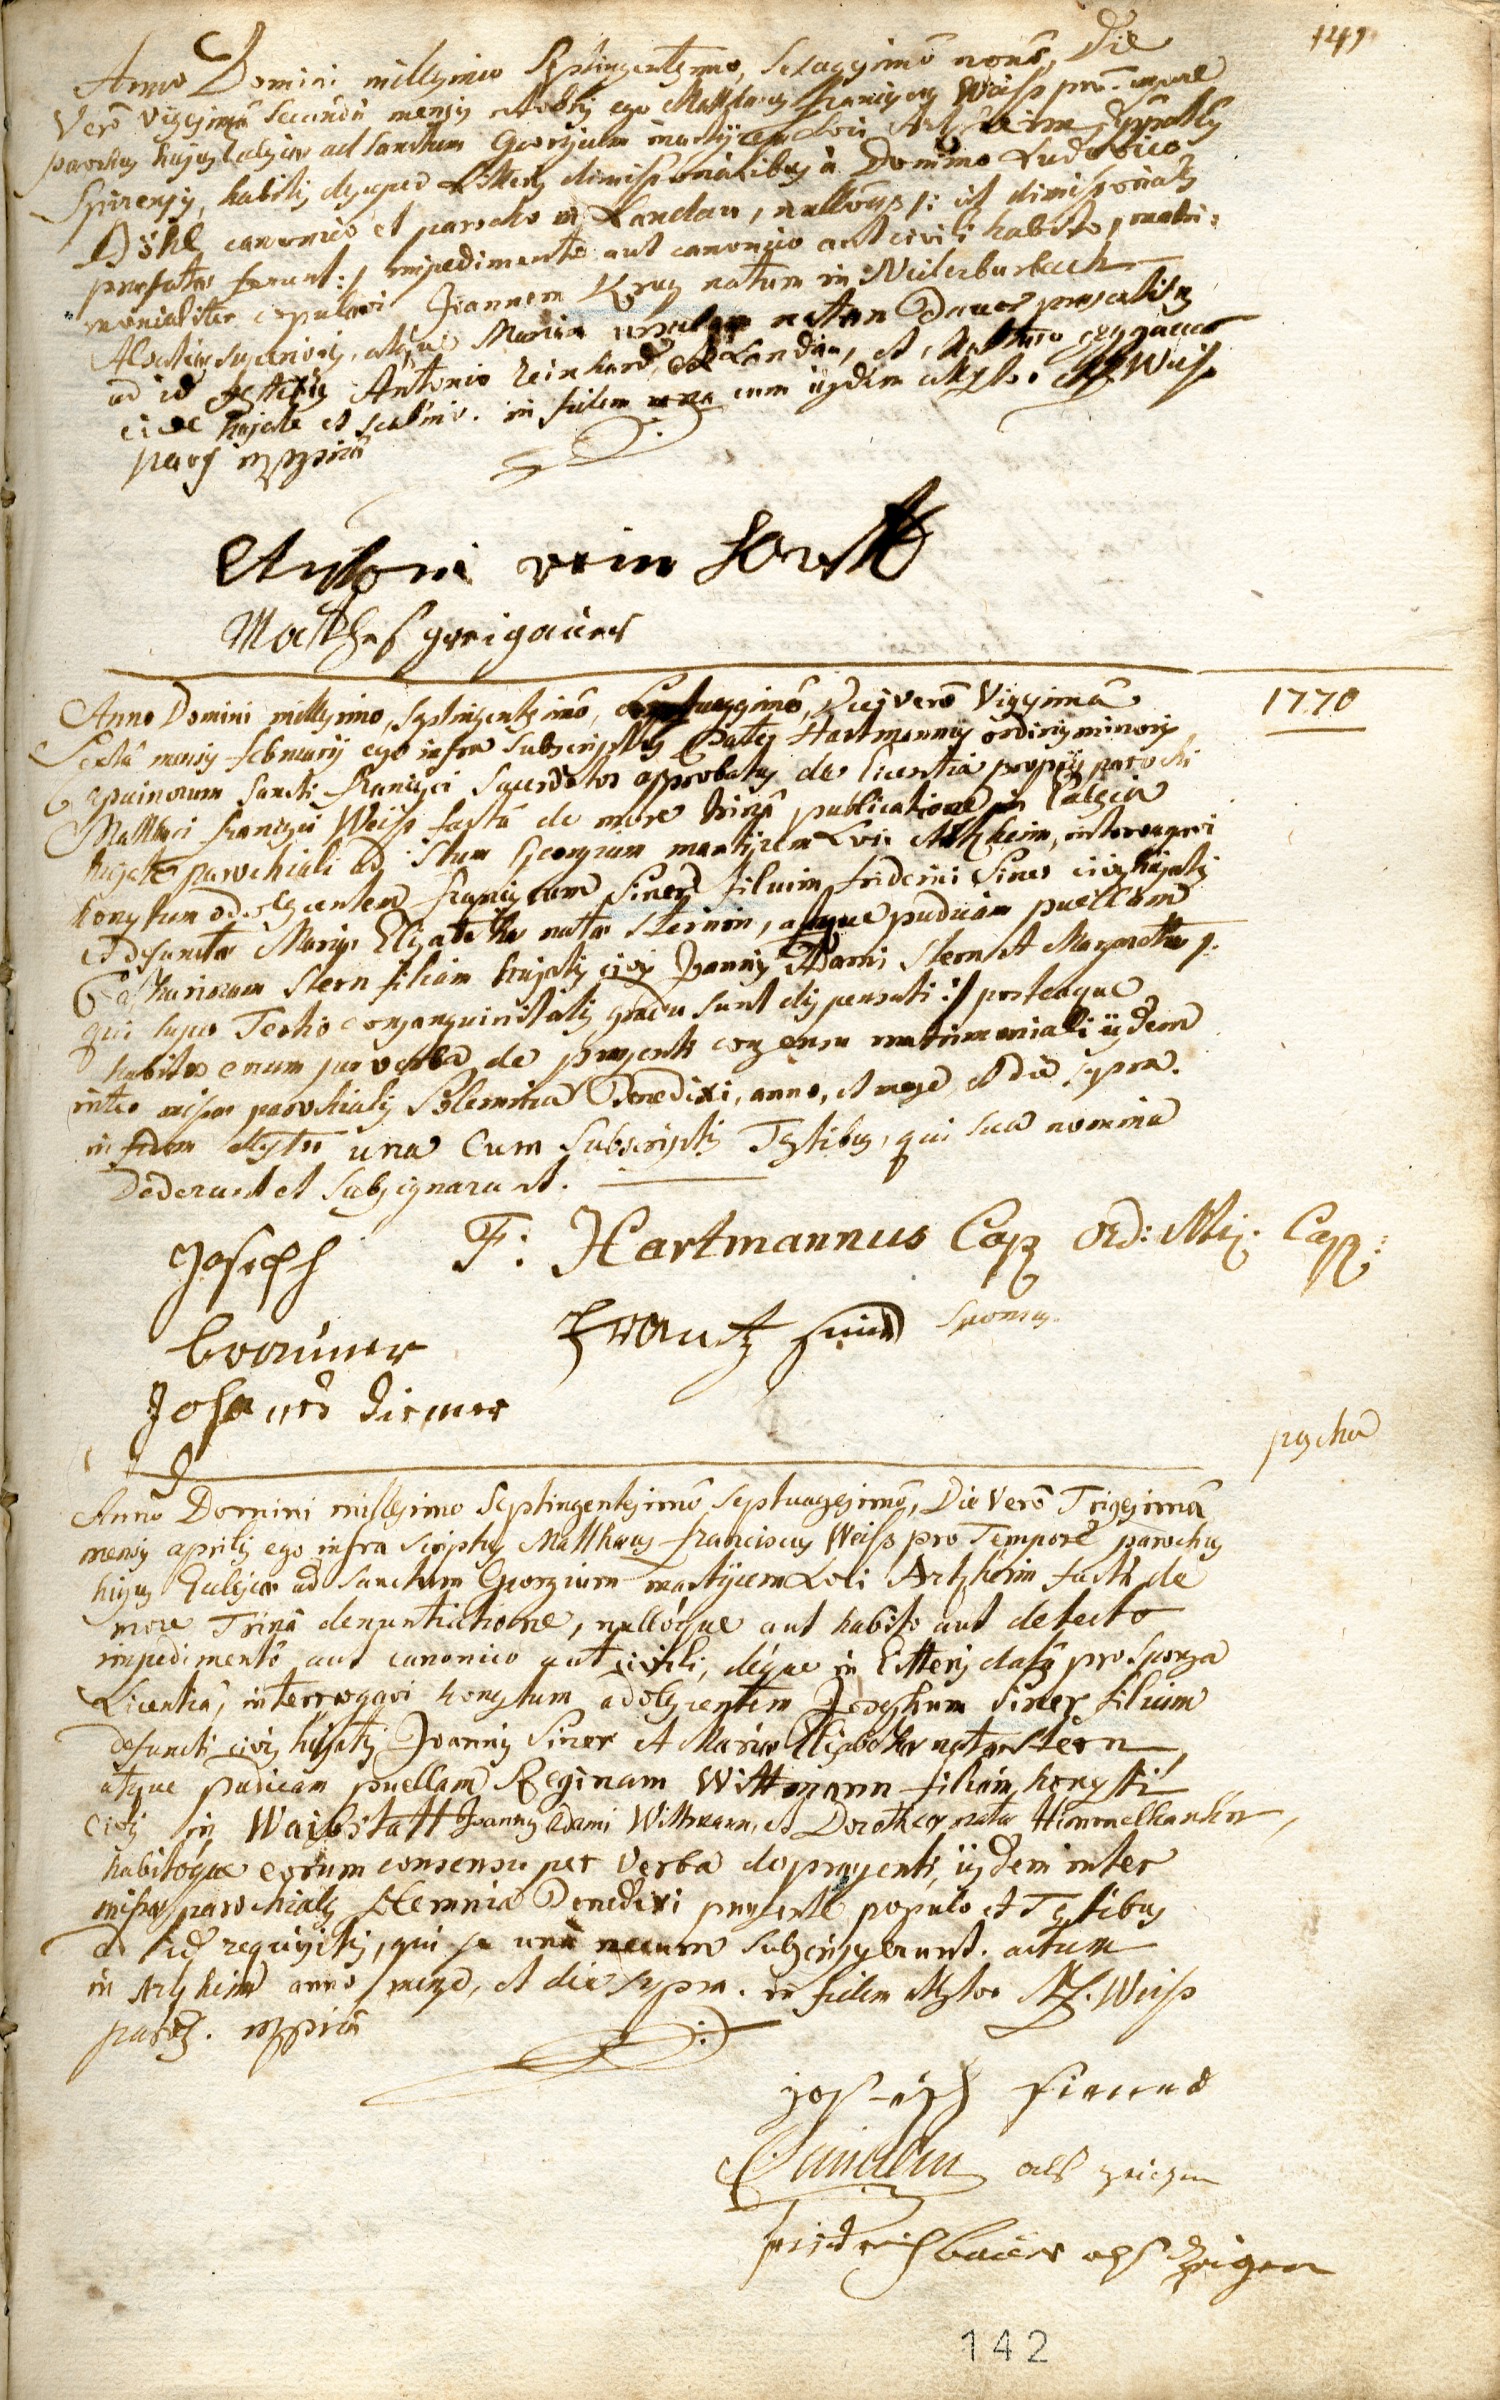 149
Anno Domini millesimo Septingentesimo, Sexagesimo nono, Die
Vero vigesimâ Secundâ mensis octobris ego Matthaeus franciscus Weiss pro tempore
parochus hujus Ecclesiae ad Sanctum Georgium martyrem Loci Artzheim,
Spirensis, habitis desuper Litteris dimissorialibus à Domino Ludovico
Döhl canonico et parocho in Landau, nullóque /: ut dimissoriales
praefatae ferunt :/ impedimento aut canonico aut civili habito, matri-
monialiter copulavi Joannem Krug natum in Neiderburbach
Alsatiae superioris, atque Mariam natam praesentibus
ad id testibus Antonio reinhard ex Landau, et Mattheo
cive hujate et scabino. in fidem una cum iisdem attestor MF Weiss
parochus mppriâ
Anthoni rein
Mathes
1770
Anno Domini millesimo, septingentesimô, Septuagesimô, Die vero Vigesimâ
Sextâ mensis februarii ego infra subscriptus Pater Hartmannus ordinis minoris
Capucinorum Sancti francisci Sacerdotos approbatus de licentia proprii parochi
Matthaei francisci Weiss factâ de more trinâ publicatione in Ecclesia
hujate parochiali ad Stum Georgium martyrem Loci Artzheim, interrogavi
honestum adolescentem franciscum Siner filium friderici Siner civis hujatis
et defunctae Mariae Elizabethae natae Sternin, atque pudicam puellam
Catharinam Stern filiam hujatis civis Joannis Adami Stern et Margarethae /:
qui super Tertio consanguinitatis gradu sunt dispensati :/ posteaque
habito eorum per verba de praesenti consensu matrimoniali iisdem
inter missae parochialis Solemnia Benedixi, anno, et mense et die supra.
in fidem attestor una Cum Subscriptis Testibus, qui sua nomina
Dederunt et subsignarunt.
Joseph F: Hartmannus Cap Ord: Min: Cap:
braüner Frantz sponsus
Johanes diemer
pascha
Anno Domini millesimo Septingentesimô Septuagesimô, Die Vero Trigesimâ
mensis aprilis ego infra scriptus Matthaeus franciscus Weiss pro Tempore parochus
hujus Ecclesiae ad Sanctum Georgium martyrem Loci Artzheim factâ de
more Trinâ denuntiatione, nullóque aut habito aut detecto
impedimento aut canonico aut civili, déque in Litteris datâ pro sponsa
Licentiâ, interrogavi honestum adolescentem Josephum Siner filium
defuncti civis hujatis Joannis Siner et Mariae Elisabethae natae Stern,
atque pudicam puellam Reginam Wittmann filiam honesti
civis in Waibstatt Joannis Adami Wittmann, et Dorotheae natae
habitóque eorum consensu per verba de praesenti, iisdem inter
missae parochialis solemnia Benedixi praesente populo et Testibus
ad id requisitis, qui se una mecum subscripserunt. actum
in Artzheim anno, mense, et die supra. in fidem attestor MF. Weiss
paroch. mppriâ
joseph
als zeigen
fridrich baüer als Zeigen
142